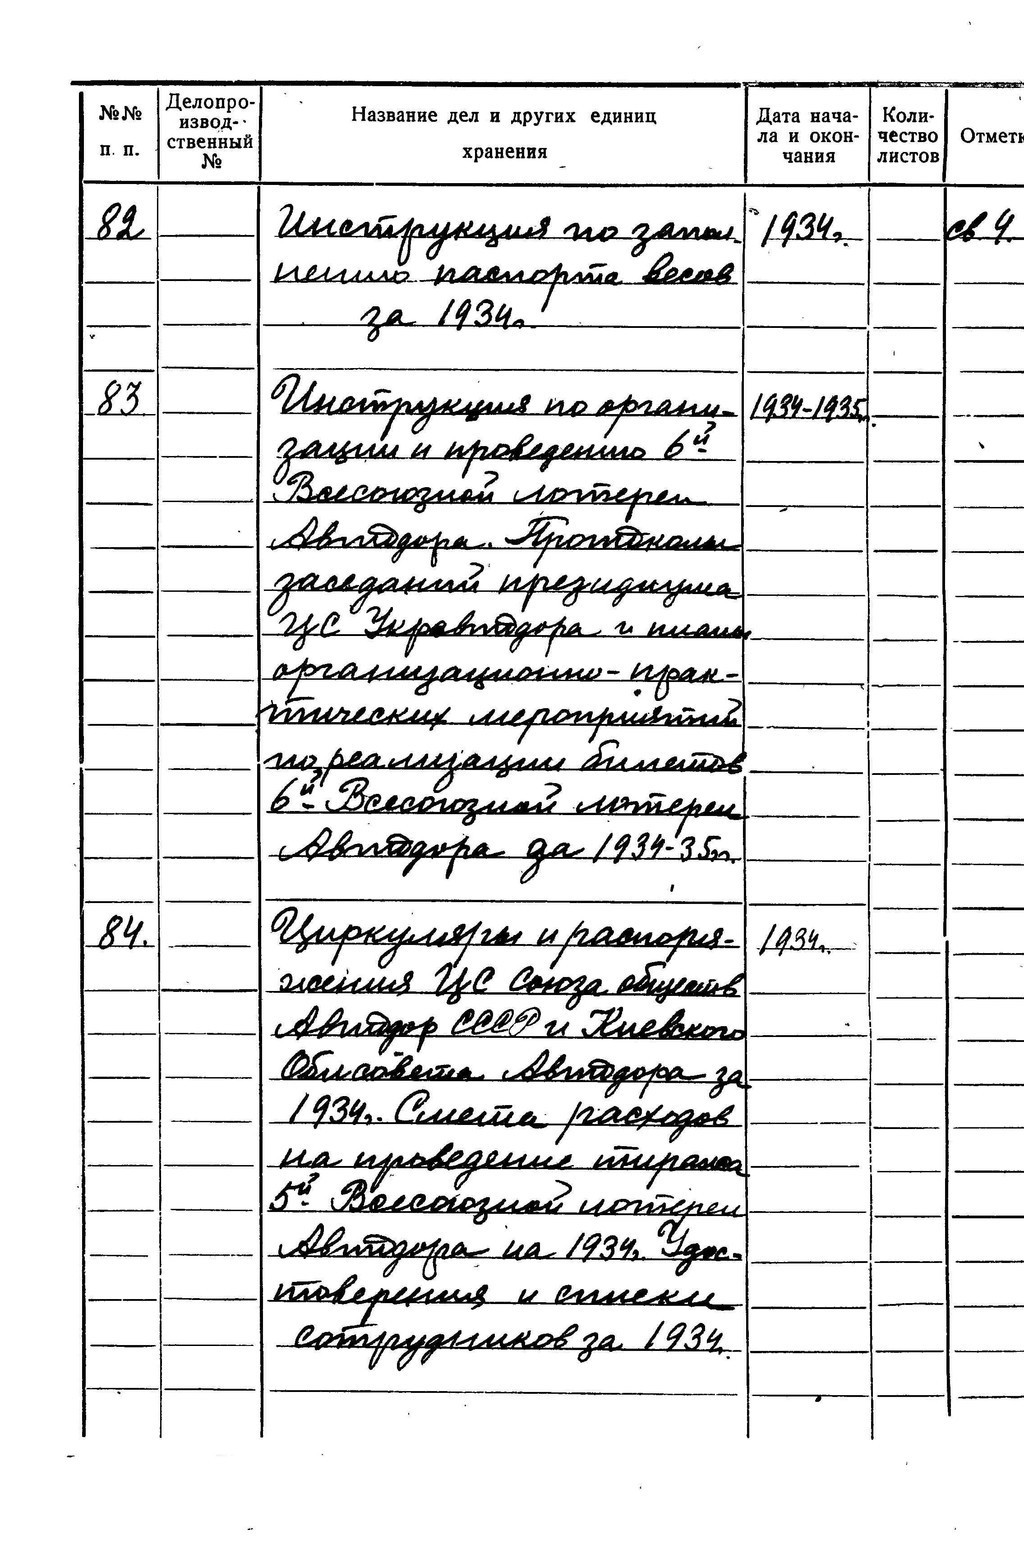 №№ п. п.
Делопро-
извод-
ственный
№
Название дел и других единиц
хранения
Дата нача-
ла и окон-
чания
Коли-
чество
листов
Отметк
82 Инструкция по запол- 1934г. св 4.
нению паспорта весов
за 1934г.
83 Инструкция по органи- 1934-1935гг.
зации и проведению 6й
Всесоюзной лотереи
Автодора. Протоколы
заседаний президиума
ЦС Укравтодора и планы
организационно-прак-
тических мероприятий
по реализации билетов
6й Всесоюзной лотереи
Автодора за 1934-35гг.
84. Циркуляры и распоря- 1934г.
жения ЦС Союза обществ
Автодор СССР и Киевского
Облсовета Автодора за
1934г. Смета расходов
на проведение тиража
5й Всесоюзной лотереи
Автодора на 1934г. Удос-
товерения и списки
сотрудников за 1934г.